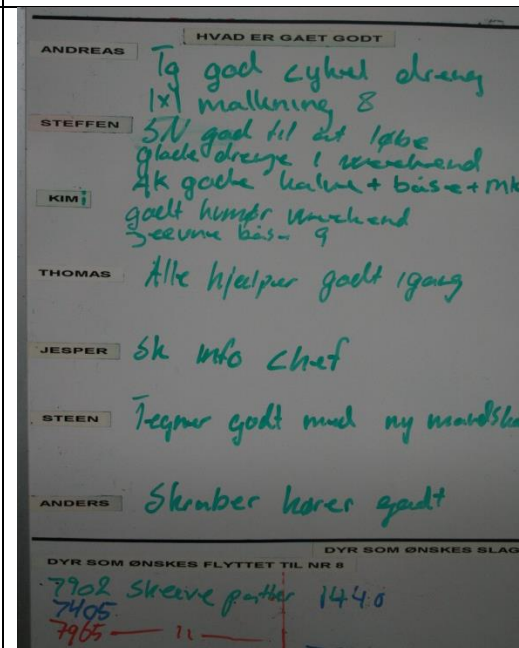 HVAD ER GAET GODT
ANDREAS
Tg god cykel dreng
1x1 malkning 8
STEFFEN
SN god til at løbe
glade drenge i weekend
AK gode kalve + båse + mk
KIM
godt humør weekend
jeevne bås 9
THOMAS
Alle hjælper godt igang
JESPER
Sk info chef
STEEN
Tegner godt med ny mandska
ANDERS
Skraber kører godt
DYR SOM ØNSKES SLAG
DYR SOM ØNSKES FLYTTET TIL NR 8
7902 skæve patter 1440
7405
7965 — 11 —